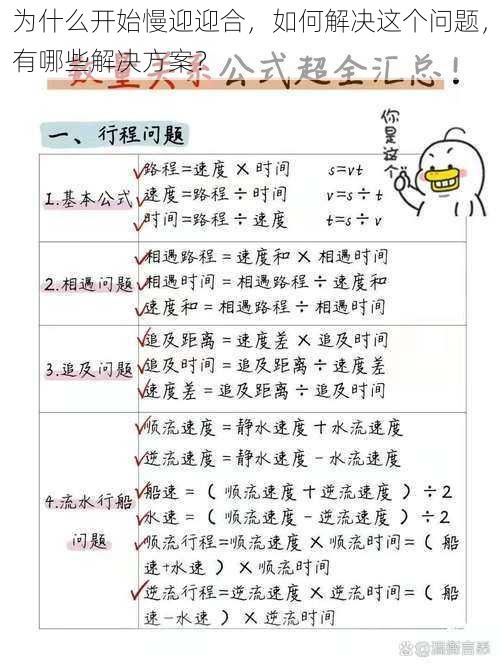 为什么开始慢迎迎合，如何解决这个问题，
有哪些解决方案？
数量关系公式超全汇总！
你是这个
一、行程问题
1.基本公式
路程=速度×时间 s=vt
速度=路程÷时间 v=s÷t
时间=路程÷速度 t=s÷v
2.相遇问题
相遇路程=速度和×相遇时间
相遇时间=相遇路程÷速度和
速度和=相遇路程÷相遇时间
3.追及问题
追及距离=速度差×追及时间
追及时间=追及距离÷速度差
速度差=追及距离÷追及时间
4.流水行船
问题
顺流速度=静水速度+水流速度
逆流速度=静水速度-水流速度
船速=(顺流速度+逆流速度)÷2
水速=(顺流速度-逆流速度)÷2
顺流行程=顺流速度×顺流时间=(船
速+水速)×顺流时间
逆流行程=逆流速度×逆流时间=(船
速-水速)×逆流时间